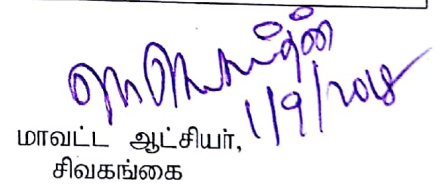 1/9/2018
மாவட்ட ஆட்சியர்,
சிவகங்கை